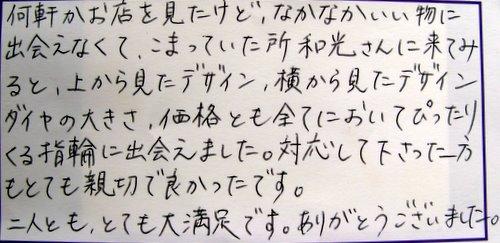 何軒かお店を見たけど、なかなかいい物に
出会えなくて、こまっていた所和光さんに来てみ
ると、上から見たデザイン、横から見たデザイン
ダイヤの大きさ、価格とも全てにおいてぴったり
くる指輪に出会えました。対応して下さった方
もとても親切で良かったです。
二人とも、とても大満足です。ありがとうございました。